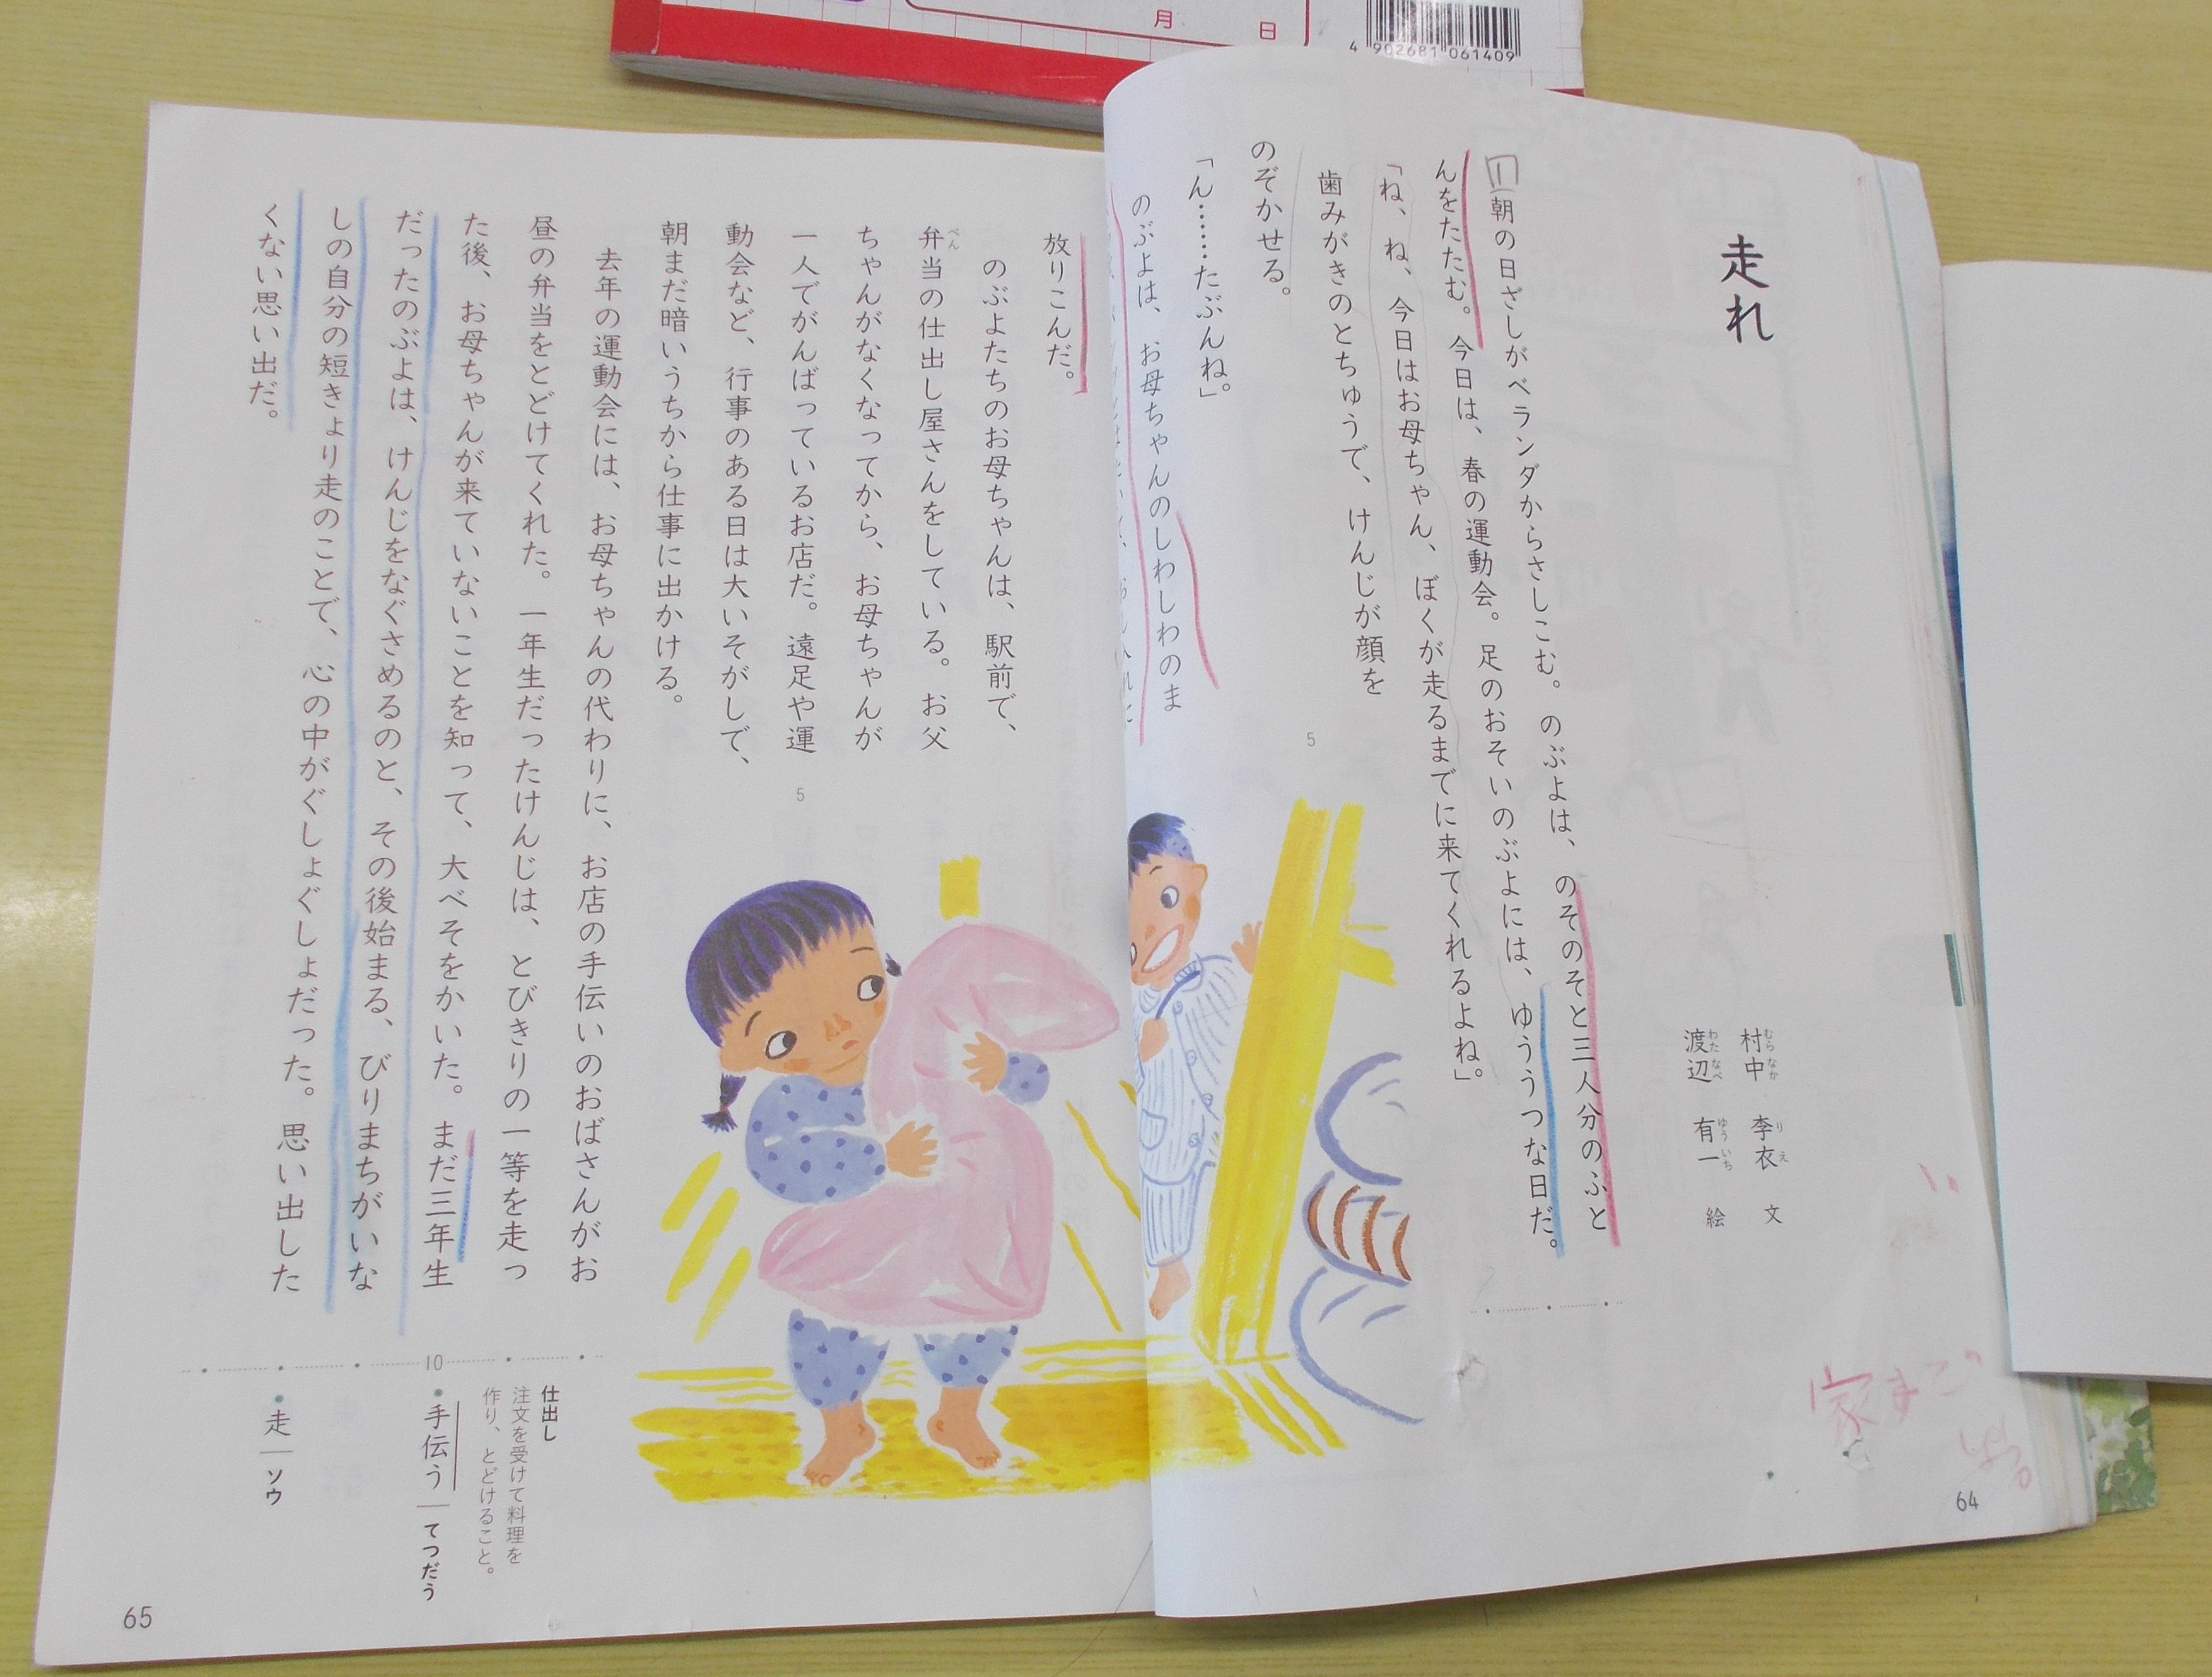 月 日
4 902681 061409
走れ
村中 李衣 文
むらなか りえ
渡辺 有一 絵
わたなべ ゆういち
1 朝の日ざしがベランダからさしこむ。のぶよは、のそのそと三人分のふと
んをたたむ。今日は、春の運動会。足のおそいのぶよには、ゆううつな日だ。
「ね、ね、今日はお母ちゃん、ぼくが走るまでに来てくれるよね」。
歯みがきのとちゅうで、けんじが顔を
のぞかせる。
「ん……たぶんね。」
のぶよは、お母ちゃんのしわしわのま
5
家まで
64
放りこんだ。
のぶよたちのお母ちゃんは、駅前で、
弁当の仕出し屋さんをしている。お父
べん
ちゃんがなくなってから、お母ちゃんが
一人でがんばっているお店だ。遠足や運
動会など、行事のある日は大いそがしで、
朝まだ暗いうちから仕事に出かける。
去年の運動会には、お母ちゃんの代わりに、お店の手伝いのおばさんがお
昼の弁当をとどけてくれた。一年生だったけんじは、とびきりの一等を走っ
た後、お母ちゃんが来ていないことを知って、大べそをかいた。まだ三年生
だったのぶよは、けんじをなぐさめるのと、その後始まる、びりまちがいな
しの自分の短きょり走のことで、心の中がぐしょぐしょだった。思い出した
くない思い出だ。
5
10
仕出し
注文を受けて料理を
作り、とどけること。
・手伝う―てつだう
・走―ソウ
65